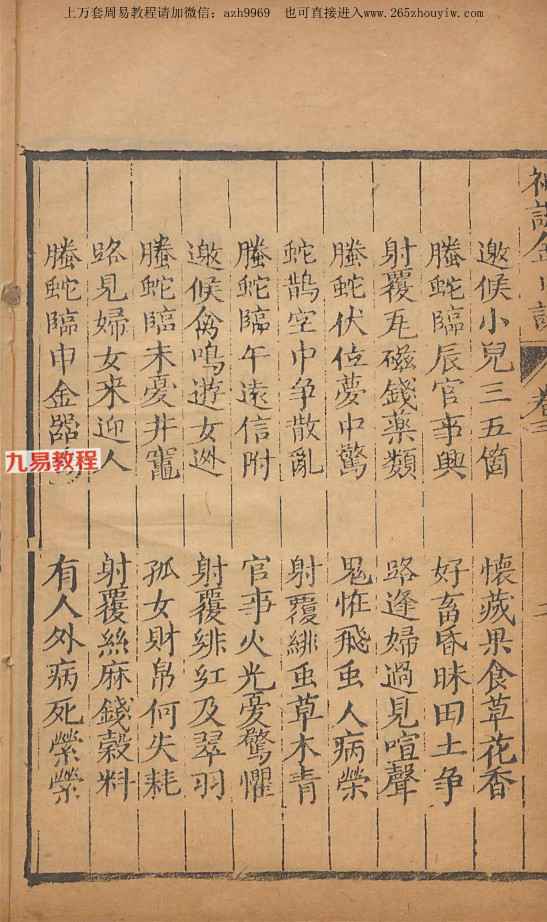 上万套周易教程请加微信:azh9969 也可直接进入www.265zhouyiw.com
神課金口訣 卷三 二
邀候小兒三五箇 懷藏果食草花香
螣蛇臨辰官事興 好畜昏昧田土爭
射覆瓦磁錢藥類 路逢婦過見喧聲
螣蛇伏位夢中驚 鬼怪飛虫人病榮
蛇鵲空中爭散亂 射覆緋虫草木青
螣蛇臨午遠信附 官事火光憂驚懼
邀候禽鳴遊女迯 射覆緋紅及翠羽
螣蛇臨未憂井竈 孤女財帛何失耗
路見婦女來迎人 射覆絲麻錢穀料
螣蛇臨申金器 有人外病死縈縈
九易教程